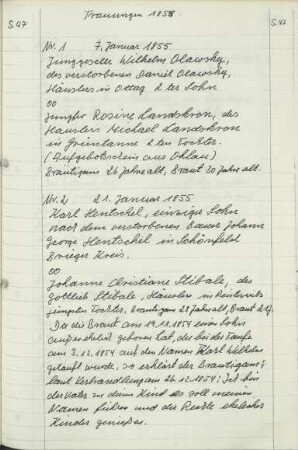 Trauungen 1855.
S. 47
S. 47
Nr. 1 7. Januar 1855
Junggeselle Wilhelm Olawsky,
des verstorbenen Daniel Olawsky,
Häuslers in Ottag 2ter Sohn
oo
Jungfer Rosine Landskron, des
Häuslers Michael Landskron
in Grüntanne 2ten Tochter.
(Aufgebotsschein aus Ohlau)
Bräutigam 26 Jahre alt, Braut 30 Jahre alt.
Nr. 2 21. Januar 1855
Karl Hentschel, einziger Sohn
nach dem verstorbenen Bauer Johann
George Hentschel in Schönfeld
Brieger Kreis.
oo
Johanne Christiane Stibale, des
Gottlieb Stibale, Häusler in
jüngsten Tochter. Bräutigam 28 Jahre alt, Braut
Da die Braut am 19.11.1854 einen Sohn
außerehelich geboren hat, der bei der Taufe
am 3.12.1854 auf den Namen Karl Wilhelm
getauft wurde, so erklärt der Bräutigam
laut Verhandlung am 26.12.1854: Ich bin
der Vater zu dem Kind es soll meinen
Namen führen und die Rechte ehelicher
Kinder genießen.